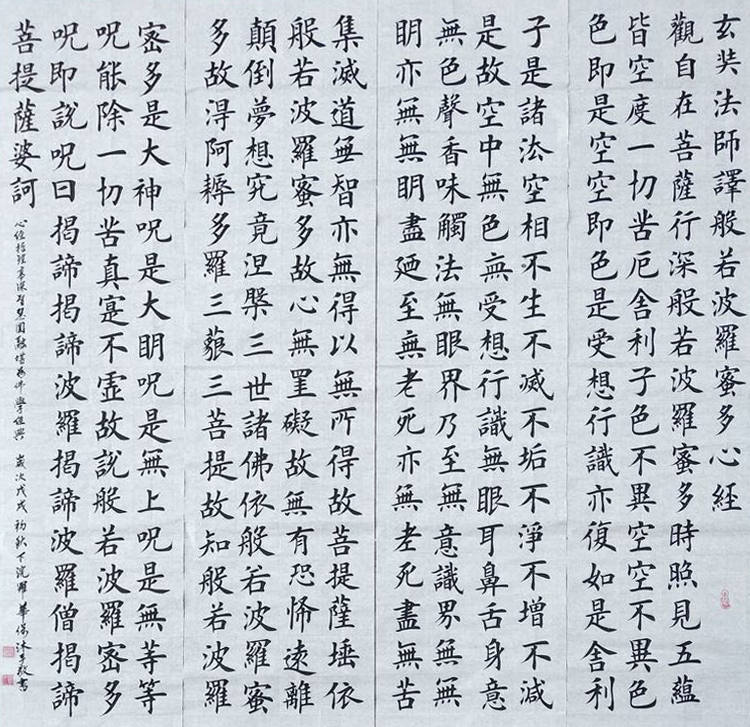 玄奘法師譯般若波羅蜜多心經
觀自在菩薩行深般若波羅蜜多時照見五蘊
皆空度一切苦厄舍利子色不異空空不異色
色即是空空即色是受想行識亦復如是舍利
子是諸法空相不生不减不垢不淨不增不減
是故空中無色無受想行識無眼耳鼻舌身意
無色聲香味觸法無眼界乃至無意識界無無
明亦無無明盡廼至無老死亦無老死盡無苦
集滅道無智亦無得以無所得故菩提薩埵依
般若波羅蜜多故心無罣礙故無有恐怖遠離
顛倒夢想究竟涅槃三世諸佛依般若波羅蜜
多故得阿耨多羅三藐三菩提故知般若波羅
密多是大神呪是大明呪是無上呪是無等等
呪能除一切苦真寔不虛故說般若波羅密多
呪即說呪曰揭諦揭諦波羅揭諦波羅僧揭諦
菩提薩婆訶
心經哲理高深智慧圓融堪為佛學經典 歲次戊戌初秋下浣 沐手敬書